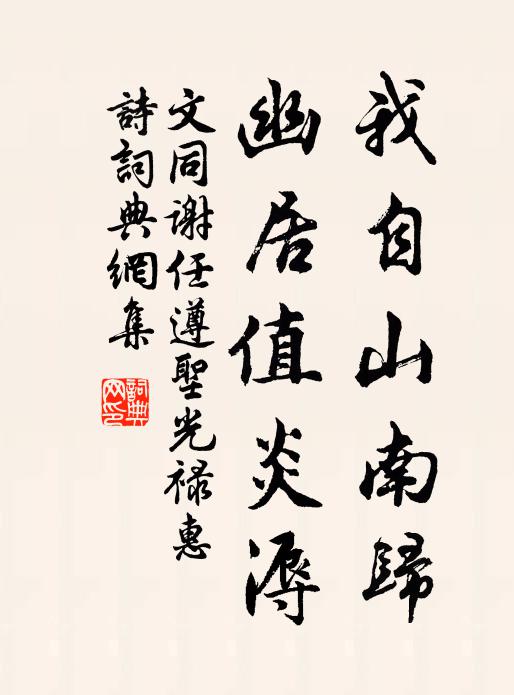 我自山南歸
幽居值炎溽
文同謝任遵聖光祿惠
詩詞典網集
詞典網印